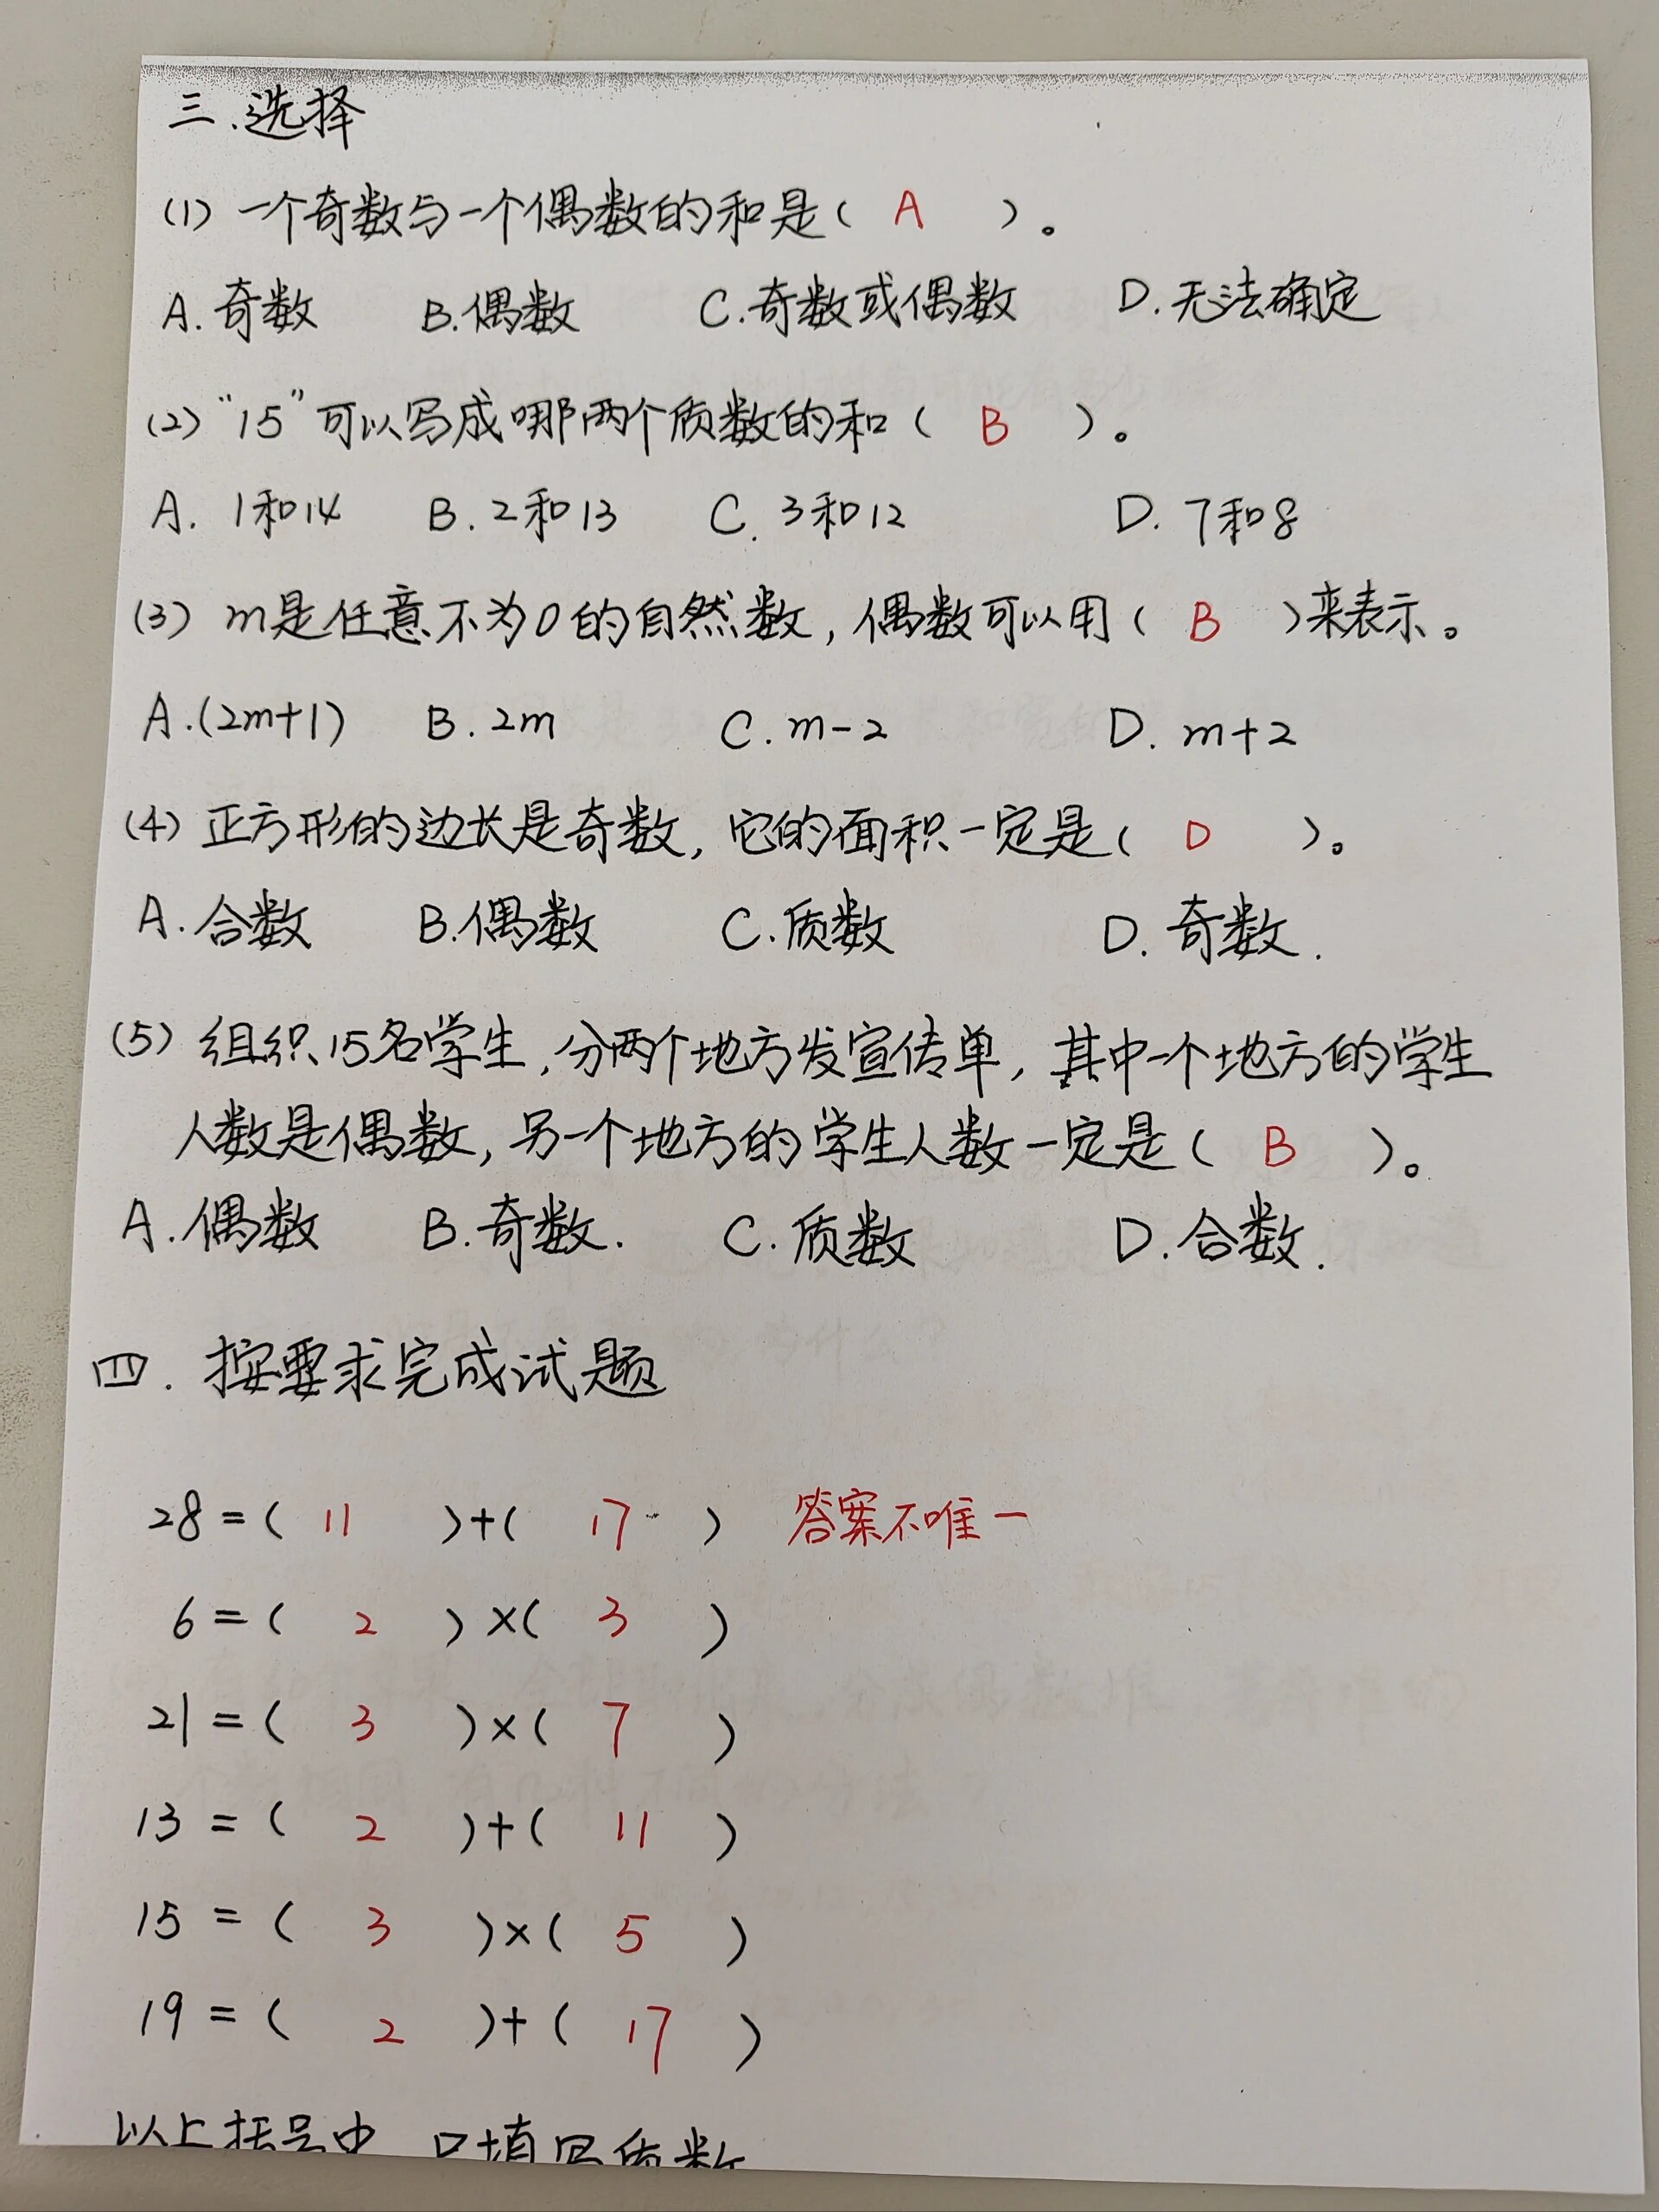 三.选择
(1) 一个奇数与一个偶数的和是( A )。
A.奇数 B.偶数 C.奇数或偶数 D.无法确定
(2) “15”可以写成哪两个质数的和( B )。
A. 1和14 B. 2和13 C. 3和12 D. 7和8
(3) m是任意不为0的自然数,偶数可以用( B )来表示。
A.(2m+1) B. 2m C. m-2 D. m+2
(4) 正方形的边长是奇数,它的面积一定是( D )。
A.合数 B.偶数 C.质数 D.奇数.
(5) 组织15名学生,分两个地方发宣传单,其中一个地方的学生
人数是偶数,另一个地方的学生人数一定是( B )。
A.偶数 B.奇数. C.质数 D.合数.
四.按要求完成试题
28=( 11 )+( 17 ) 答案不唯一
6=( 2 )×( 3 )
21=( 3 )×( 7 )
13=( 2 )+( 11 )
15=( 3 )×( 5 )
19=( 2 )+( 17 )
以上括号中 只填写质数